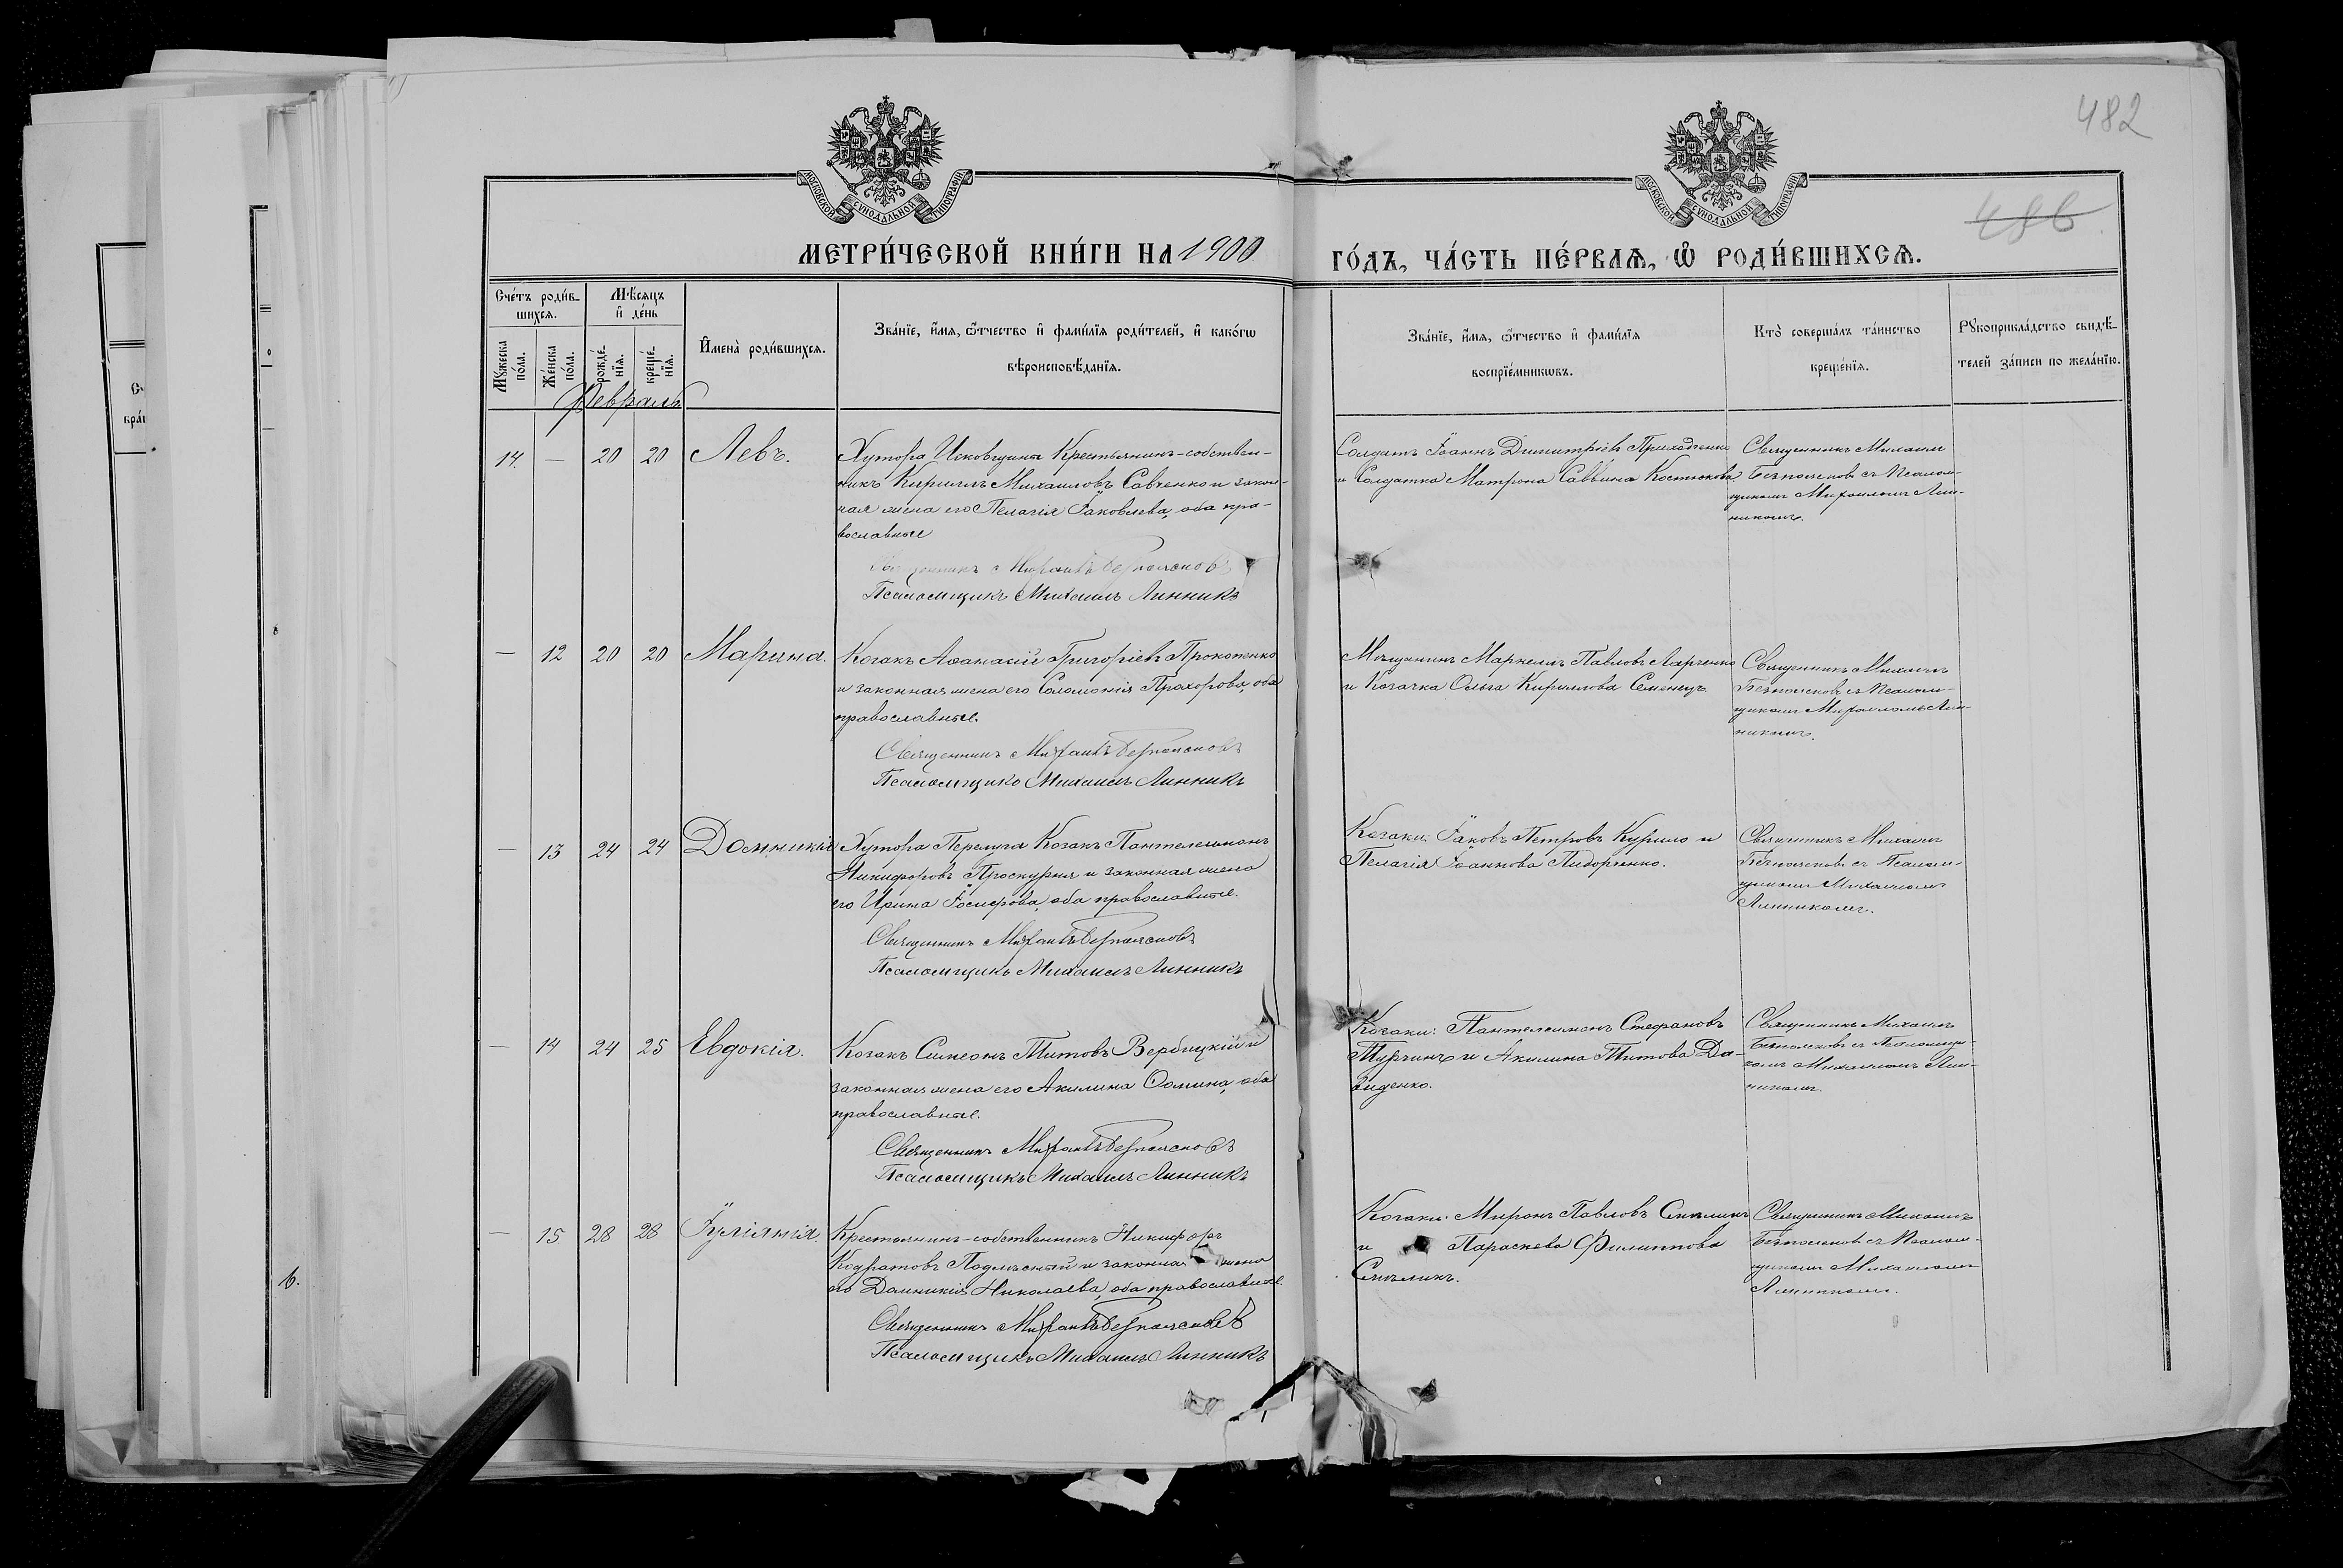 482
486
МОСКОВСКОЙ СѴНОДАЛЬНОЙ ТИПОГРАФІИ
МОСКОВСКОЙ СѴНОДАЛЬНОЙ ТИПОГРАФІИ
МЕТРИ́ЧЕСКОЙ КНИ́ГИ НА 1900
ГО́ДЪ, ЧА́СТЬ ПЕ́РВАѦ, Ѡ҆ РОДИ́ВШИХСѦ.
Сче́тъ роди́в-
шихсѧ.
Мꙋ́жеска
по́ла.
Же́нска
по́ла.
Мѣ́сяцъ
и҆ де́нь
рожде́-
нїѧ.
креще́-
нїѧ.
И҆мена̀ роди́вшихсѧ.
Зва́нїе, и҆́мѧ, ѻ҆́тчество и҆ фами́лїѧ роди́телей, и҆ како́гѡ
вѣроисповѣ́данїѧ.
Зва́нїе, и҆́мѧ, ѻ҆́тчество и҆ фами́лїѧ
воспрїе́мникѡвъ.
Кто̀ соверша́лъ та́инство
креще́нїѧ.
Рꙋкоприкла́дство свидѣ́-
телей за́писи по жела́нїю.
Февраль
14. — 20 20 Левъ.
Хутора Исковщина Крестьянинъ-собствен-
никъ Кириллъ Михаиловъ Савченко и закон-
ная жена его Пелагія Іаковлева, оба пра-
вославные
Священникъ Михаилъ Безпалсновъ
Псаломщикъ Михаилъ Линникъ
Солдатъ Іоаннъ Димитріевъ Приходченко
и Солдатка Матрона Саввина Костюкова
Священникъ Михаилъ
съ Псалом-
щикомъ Михаиломъ Лин-
никомъ.
— 12 20 20 Марина.
Козакъ Аѳанасій Григоріевъ Прокопенко
и законная жена его Соломонія Прохорова, оба
православные.
Священникъ Михаилъ
Псаломщикъ Михаилъ Линникъ
Мѣщанинъ Маркеллъ Павловъ Ларченко
и Козачка Ольга Кириллова Семенецъ
Священникъ Михаилъ
съ Псалом-
щикомъ Михаиломъ Лин-
никомъ.
— 13 24 24 Домникія
Хутора Перелуга Козакъ Пантелеимонъ
Никифоровъ Проскурня и законная жена
его Ирина Іосифова, оба православные.
Священникъ Михаилъ
Псаломщикъ Михаилъ Линникъ
Козаки: Іаковъ Петровъ Курило и
Пелагія Іоаннова Пидоренко.
Священникъ Михаилъ
съ Псалом-
щикомъ Михаиломъ
Линникомъ.
— 14 24 25 Евдокія.
Козакъ Симеонъ Титовъ Вербицкій и
законная жена его Акилина Ѳомина, оба
православные.
Священникъ Михаилъ
Псаломщикъ Михаилъ Линникъ
Козаки: Пантелеимонъ Стефановъ
Турчинъ и Акилина Титова Да-
виденко.
Священникъ Михаилъ
съ Псаломщи-
комъ Михаиломъ Лин-
никомъ.
— 15 28 28 Іуліанія.
Крестьянинъ-собственникъ Никифоръ
Кодратовъ Подлѣсный и законная жена
его Домникія Николаева, оба православные.
Священникъ Михаилъ
Псаломщикъ Михаилъ Линникъ
Козаки: Миронъ Павловъ Смѣликъ
и Параскева Филиппова
Смѣликъ.
Священникъ Михаилъ
съ Псалом-
щикомъ Михаиломъ
Линникомъ.